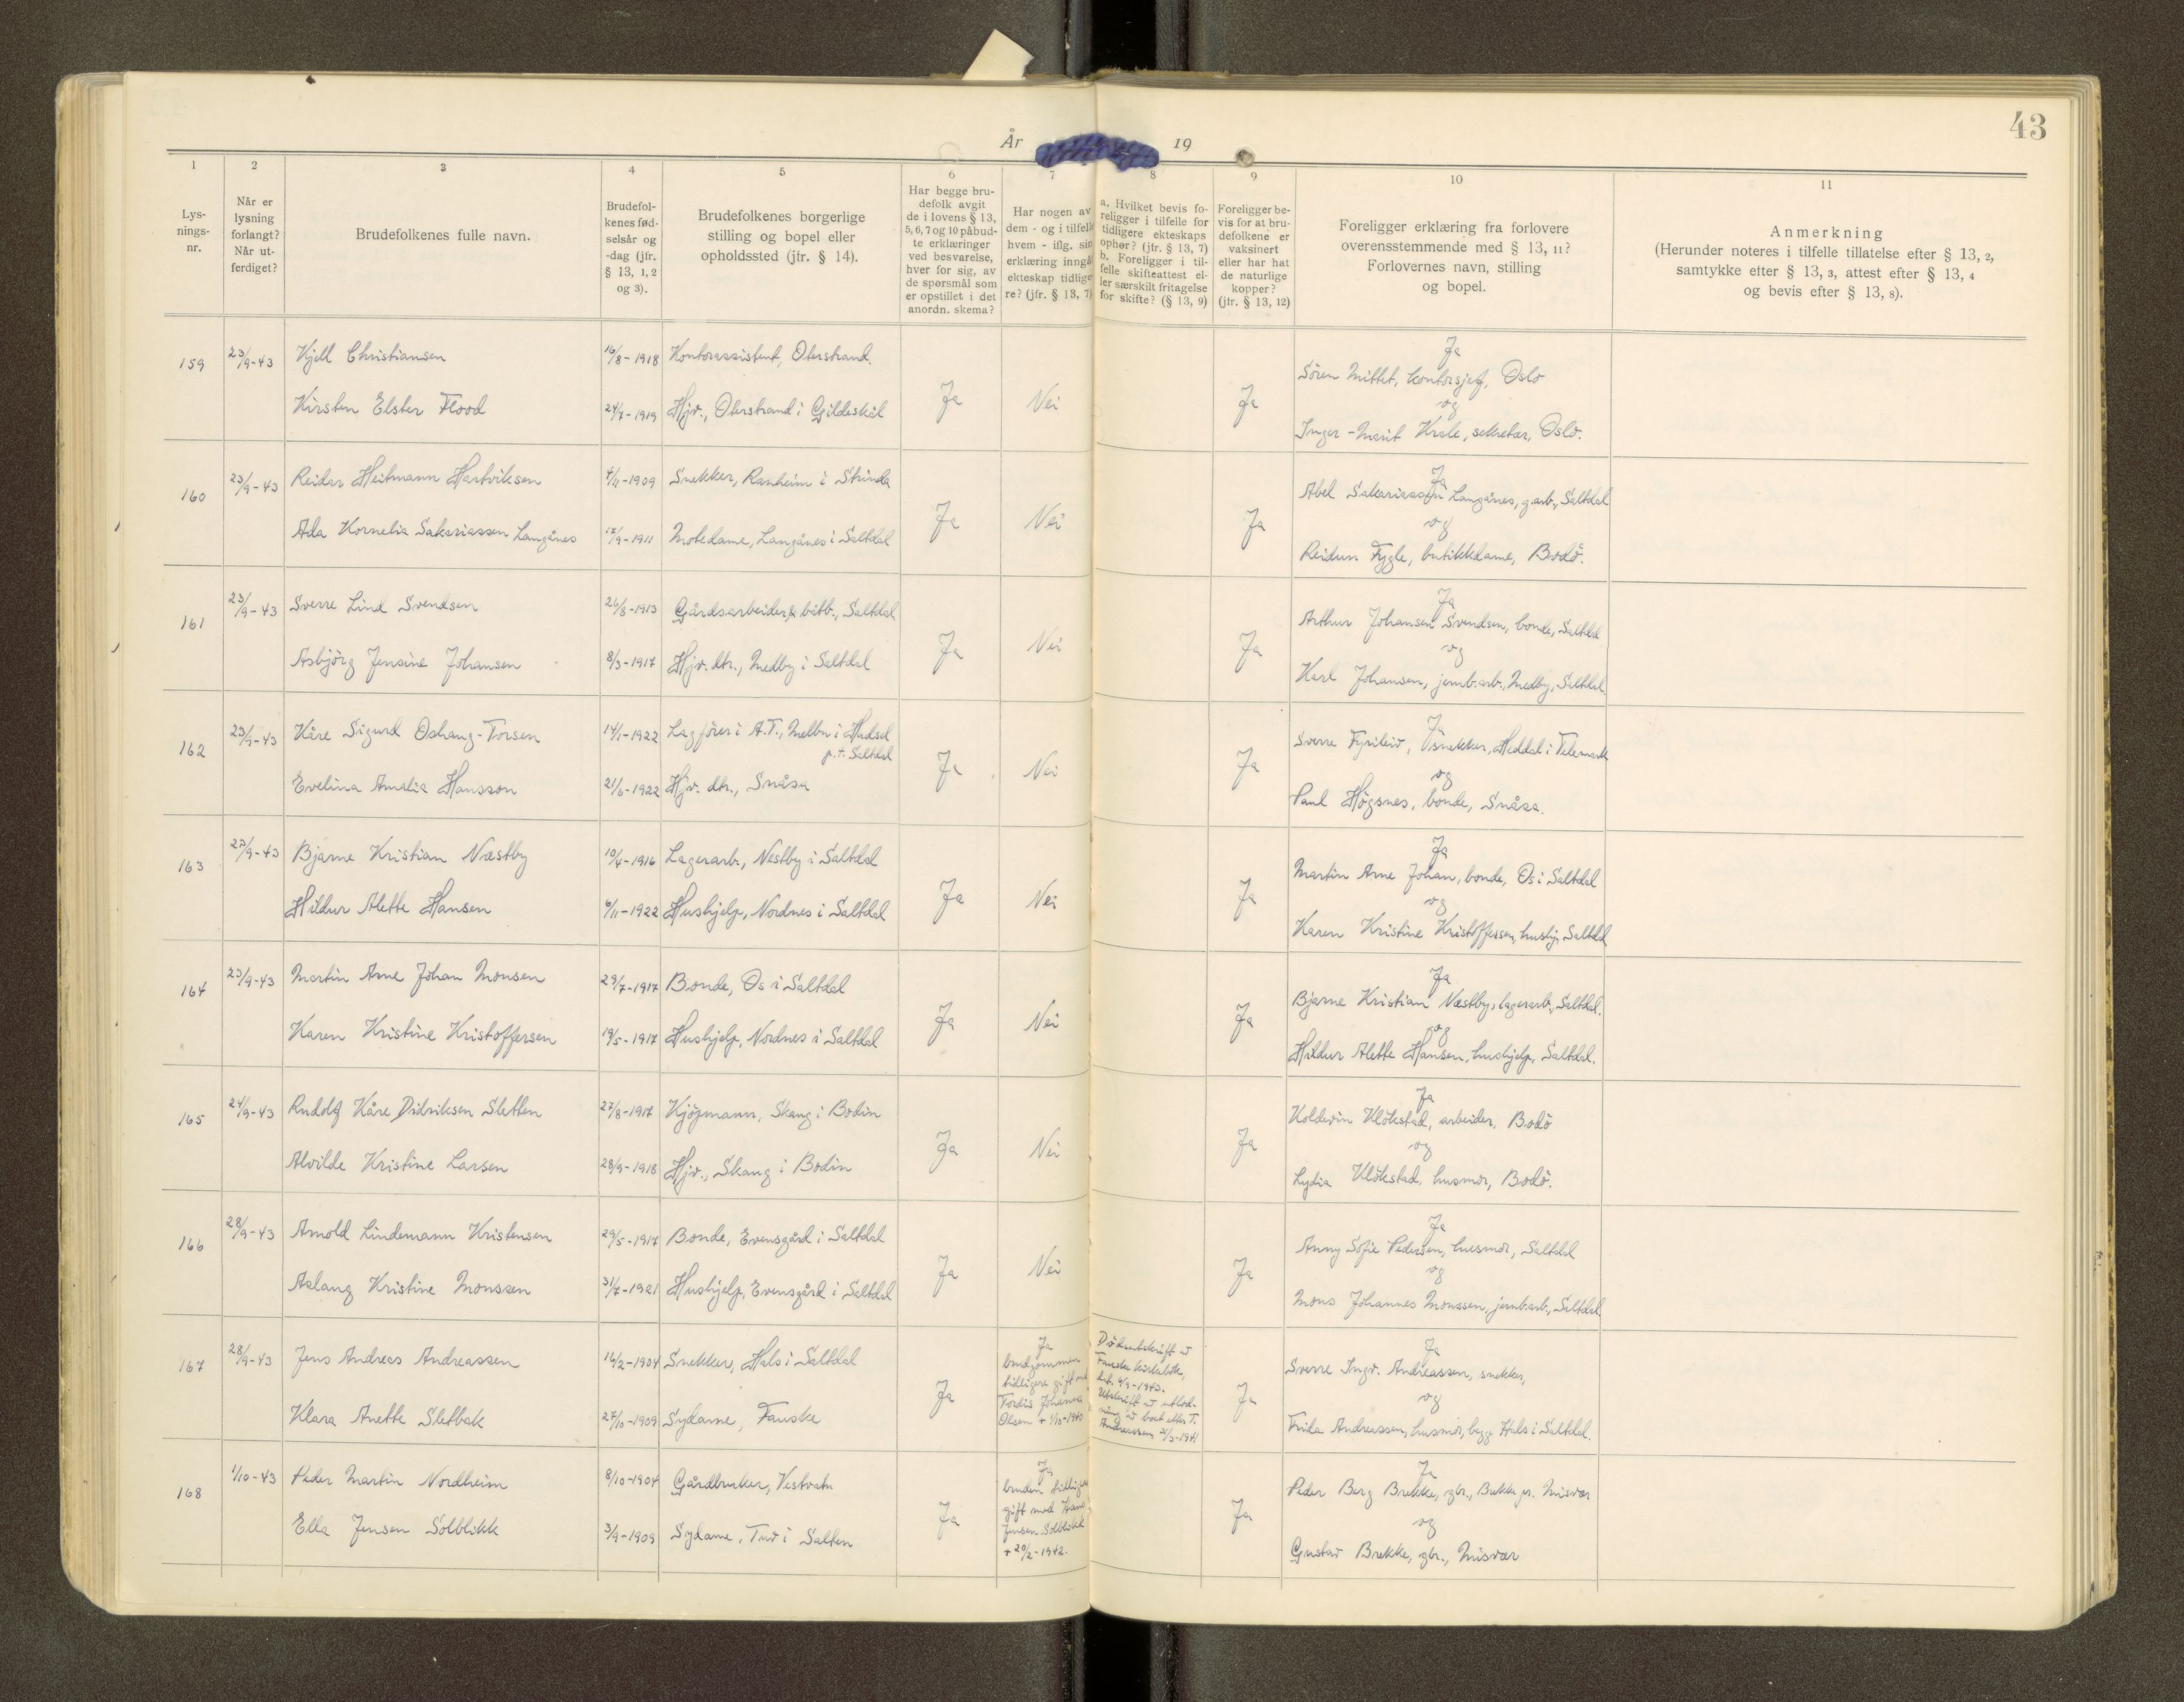 43
År 19
1 2 3 4 5 6 7 8 9 10 11
Lys-
nings-
nr.
Når er
lysning
forlangt?
Når ut-
ferdiget?
Brudefolkenes fulle navn.
Brudefol-
kenes fød-
selsår og
-dag (jfr.
§ 13, 1, 2
og 3).
Brudefolkenes borgerlige
stilling og bopel eller
opholdssted (jfr. § 14).
Har begge bru-
defolk avgit
de i lovens § 13,
5, 6, 7 og 10 påbud-
te erklæringer
ved besvarelse,
hver for sig, av
de spørsmål som
er opstillet i det
anordn. skema?
Har nogen av
dem - og i tilfelle
hvem - iflg. sin
erklæring inngå
ekteskap tidlige
re? (jfr. § 13, 7)
a. Hvilket bevis fo-
religger i tilfelle for
tidligere ekteskaps
ophør? (jfr. § 13, 7)
b. Foreligger i til-
felle skifteattest el-
ler særskilt fritagelse
for skifte? (§ 13, 9)
Foreligger be-
vis for at bru-
defolkene er
vaksinert
eller har hat
de naturlige
kopper?
(jfr. § 13, 12)
Foreligger erklæring fra forlovere
overensstemmende med § 13, 11?
Forlovernes navn, stilling
og bopel.
Anmerkning
(Herunder noteres i tilfelle tillatelse efter § 13, 2,
samtykke efter § 13, 3, attest efter § 13, 4
og bevis efter § 13, 8).
159 23/9-43 Kjell Christiansen 16/8-1918 Kontorassistent, Oterstrand.
Kirsten Elster Flood 24/7-1919 Hjv., Oterstrand i Gildeskål
Ja Nei Ja
Ja
Sören Mittet, kontorsjef, Oslo
og
Inger-Marit Krale, sekretær, Oslo.
160 23/9-43 Reidar Heitmann Hartviksen 4/11-1909 Snekker, Ranheim i Strinda
Ada Kornelia Sakariassen Langånes 17/9-1911 Motedame, Langånes i Saltdal
Ja Nei Ja
Ja
Abel Sakariassen Langånes, g.arb., Saltdal
og
Reidun Fygle, butikkdame, Bodö.
161 23/9-43 Sverre Lind Svendsen 26/8-1913 Gårdsarbeider, Saltdal
Asbjörg Jensine Johansen 8/3-1917 Hjv. dtr., Medby i Saltdal
Ja Nei Ja
Ja
Arthur Johansen Svendsen, bonde, Saltdal
og
Karl Johansen, jernb.arb., Medby, Saltdal.
162 23/9-43 Kåre Sigurd Oshaug-Torsen 14/1-1922 Lagförer i A.T., Melbu i Hadsel
p.t. Saltdal
Evelina Amalia Hansson 21/6-1922 Hjv. dtr., Snåsa
Ja Nei Ja
Ja
Sverre Fyrileiv, snekker, Heddal i Telemark
og
Paul Högsnes, bonde, Snåsa.
163 27/9-43 Bjarne Kristian Næstby 10/4-1916 Lagerarb., Nestby i Saltdal
Hildur Alette Hansen 6/11-1922 Hushjelp, Nordnes i Saltdal
Ja Nei Ja
Ja
Martin Arne Johan, bonde, Os i Saltdal
og
Karen Kristine Kristoffersen, hushj. Saltdal
164 23/9-43 Martin Arne Johan Monsen 29/7-1917 Bonde, Os i Saltdal
Karen Kristine Kristoffersen 19/5-1917 Hushjelp, Nordnes i Saltdal
Ja Nei Ja
Ja
Bjarne Kristian Næstby, lagerarb., Saltdal.
og
Hildur Alette Hansen, hushjelp, Saltdal.
165 24/9-43 Rudolf Kåre Didriksen Sletten 27/8-1917 Kjöpmann, Skaug i Bodin
Alvilde Kristine Larsen 28/9-1918 Hjv., Skaug i Bodin
Ja Nei Ja
Ja
Koldevin Klökstad, arbeider, Bodö
og
Lydia Klökstad, husmor, Bodö.
166 28/9-43 Arnold Lindemann Kristensen 29/5-1917 Bonde, Evensgård i Saltdal
Aslaug Kristine Monssen 31/7-1921 Hushjelp, Evensgård i Saltdal
Ja Nei Ja
Ja
Anny Sofie Pedersen, husmor, Saltdal
og
Mons Johannes Monssen, jernb.arb., Saltdal.
167 28/9-43 Jens Andreas Andreassen 16/2-1904 Snekker, Hals i Saltdal
Klara Anette Sletbak 27/10-1909 Sydame, Fauske
Ja
Ja
brudgommen
tidligere gift med
Tordis Johanna
Olsen + 1/10-1940
Dödsutskrift av
Fauske kirkebok,
dat. 4/9-1943.
Utskrift av utlod-
ning av boet etter T.
Andreassen 21/3-1941
Ja
Ja
Sverre Ingv. Andreassen, snekker,
og
Frida Andreassen, husmor, begge Hals i Saltdal.
168 1/10-43 Peder Martin Nordheim 8/10-1904 Gårdbruker, Vestvatn
Ella Jensen Solblikk 3/9-1909 Sydame, Tuv i Salten
Ja
Ja
bruden tidligere
gift med Hans
Jensen Solblikk
+ 20/2-1942.
Ja
Ja
Peder Berg Brekke, gbr., Brekke pr. Misvær
og
Gustav Brekke, gbr., Misvær